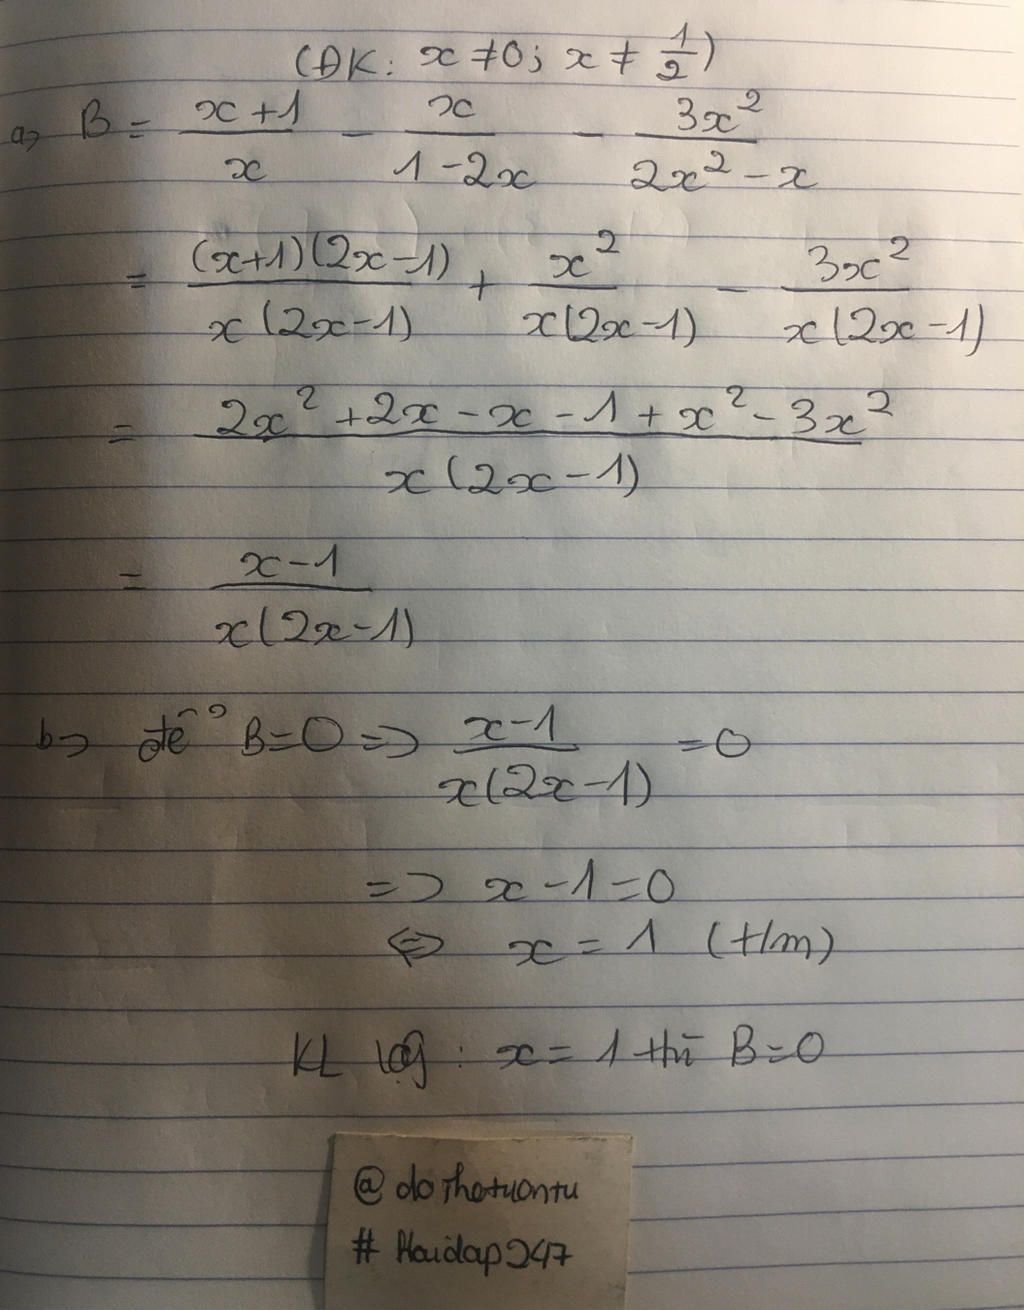 (ĐK: x ≠ 0; x ≠ 1/2)
a) B = (x+1)/x - x/(1-2x) - 3x²/(2x²-x)
= (x+1)(2x-1)/x(2x-1) + x²/x(2x-1) - 3x²/x(2x-1)
= (2x²+2x-x-1+x²-3x²)/x(2x-1)
= (x-1)/x(2x-1)
b) để B=0 => (x-1)/x(2x-1) = 0
=> x-1=0
<=> x = 1 (t/m)
KL : x = 1 thì B=0
@dothotuontu
#Hoidap247